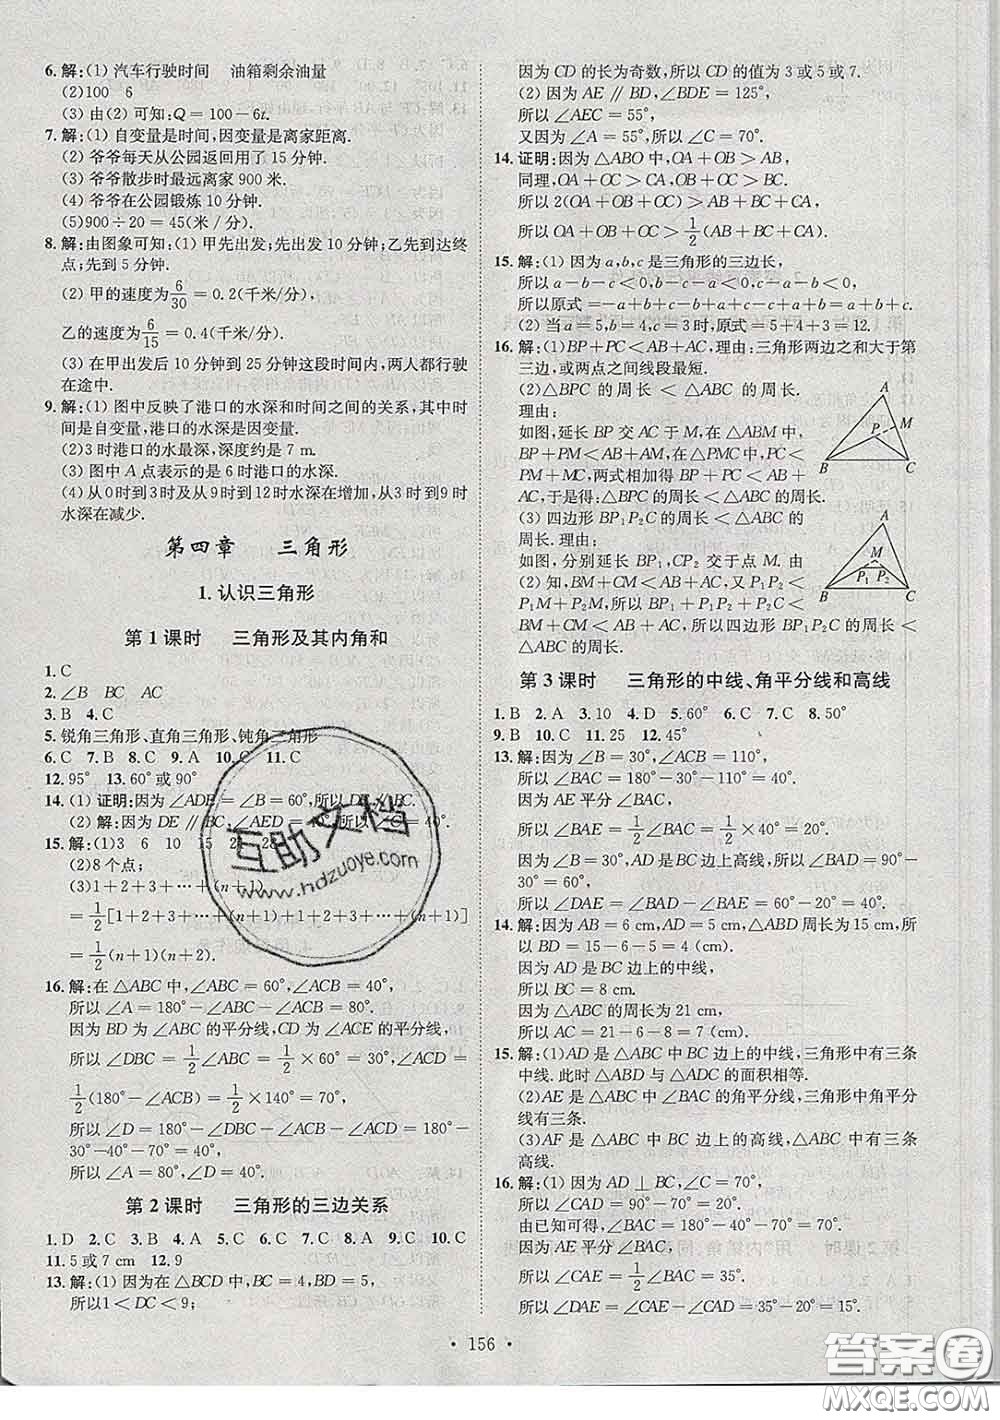 6.解:(1)汽车行驶时间 油箱剩余油量
(2)100 6
(3)由(2)可知:Q=100-6t.
7.解:(1)自变量是时间,因变量是离家距离.
(2)爷爷每天从公园返回用了15分钟.
(3)爷爷散步时最远离家900米.
(4)爷爷在公园锻炼10分钟.
(5)900÷20=45(米/分)
8.解:由图象可知:(1)甲先出发;先出发10分钟;乙先到达终
点;先到5分钟.
(2)甲的速度为6/30=0.2(千米/分),
乙的速度为6/15=0.4(千米/分),
(3)在甲出发后10分钟到25分钟这段时间内,两人都行驶
在途中.
9.解:(1)图中反映了港口的水深和时间之间的关系,其中时
间是自变量,港口的水深是因变量.
(2)3时港口的水最深,深度约是7m.
(3)图中A点表示的是6时港口的水深.
(4)从0时到3时及从9时到12时水深在增加,从3时到9时
水深在减少.
第四章 三角形
1.认识三角形
第1课时 三角形及其内角和
1.C
2.∠B BC AC
3.B 4.C
5.锐角三角形、直角三角形、钝角三角形
6.C 7.B 8.C 9.A 10.C 11.C
12.95° 13.60°或90°
14.(1)证明:因为∠ADE=∠B=60°,所以DE∥BC.
(2)解:因为DE∥BC,∠AED=40°,所以∠C=40°.
15.解:(1)3 6 10 15 21 28
(2)8个点;
(3)1+2+3+…+(n+1)
=1/2[1+2+3+…+(n+1)+1+2+3+…+(n+1)]
=1/2(n+1)(n+2).
16.解:在△ABC中,∠ABC=60°,∠ACB=40°,
所以∠A=180°-∠ABC-∠ACB=80°.
因为BD为∠ABC的平分线,CD为∠ACE的平分线,
所以∠DBC=1/2∠ABC=1/2×60°=30°,∠ACD=
1/2(180°-∠ACB)=1/2×140°=70°,
所以∠D=180°-∠DBC-∠ACB-∠ACD=180°-
30°-40°-70°=40°,
所以∠A=80°,∠D=40°.
第2课时 三角形的三边关系
1.D 2.C 3.B 4.B 5.A 6.A 7.C 8.C 9.C 10.C
11.5或7cm 12.9
13.解:(1)因为在△BCD中,BC=4,BD=5,
所以1<DC<9;
因为CD的长为奇数,所以CD的值为3或5或7.
(2)因为AE∥BD,∠BDE=125°,
所以∠AEC=55°,
又因为∠A=55°,所以∠C=70°.
14.证明:因为△ABO中,OA+OB>AB,
同理,OA+OC>CA,OB+OC>BC.
所以2(OA+OB+OC)>AB+BC+CA,
所以OA+OB+OC>1/2(AB+BC+CA)
15.解:(1)因为a,b,c是三角形的三边长,
所以a-b-c<0,b-c-a<0,c-a-b<0,
所以原式=-a+b+c-b+c+a-c+a+b=a+b+c.
(2)当a=5,b=4,c=3时,原式=5+4+3=12.
16.解:(1)BP+PC<AB+AC,理由:三角形两边之和大于第
三边,或两点之间线段最短.
(2)△BPC的周长<△ABC的周长.
理由:
如图,延长BP交AC于M,在△ABM中,
BP+PM<AB+AM,在△PMC中,PC<
PM+MC,两式相加得BP+PC<AB+
AC,于是得:△BPC的周长<△ABC的周长.
(3)四边形BP₁P₂C的周长<△ABC的周
长.理由:
如图,分别延长BP₁,CP₂交于点M.由
(2)知,BM+CM<AB+AC,又P₁P₂<
P₁M+P₂M,可得,BP₁+P₁P₂+P₂C<
BM+CM<AB+AC,所以四边形BP₁P₂C的周长<
△ABC的周长.
A
P
M
B
C
A
M
P₁ P₂
B
C
第3课时 三角形的中线、角平分线和高线
1.B 2.A 3.10 4.D 5.60° 6.C 7.C 8.50°
9.B 10.C 11.25 12.45°
13.解:因为∠B=30°,∠ACB=110°,
所以∠BAC=180°-30°-110°=40°.
因为AE平分∠BAC,
所以∠BAE=1/2∠BAC=1/2×40°=20°.
因为∠B=30°,AD是BC边上高线,所以∠BAD=90°-
30°=60°,
所以∠DAE=∠BAD-∠BAE=60°-20°=40°.
14.解:因为AB=6cm,AD=5cm,△ABD周长为15cm,所
以BD=15-6-5=4(cm).
因为AD是BC边上的中线,
所以BC=8cm.
因为△ABC的周长为21cm,
所以AC=21-6-8=7(cm).
15.解:(1)AD是△ABC中BC边上的中线,三角形中有三条
中线.此时△ABD与△ADC的面积相等.
(2)AE是△ABC中∠BAC的角平分线,三角形中角平分
线有三条.
(3)AF是△ABC中BC边上的高线,三角形中有三条
高线.
16.解:因为AD⊥BC,∠C=70°,
所以∠CAD=90°-70°=20°.
由已知可得,∠BAC=180°-40°-70°=70°,
所以∠CAE=1/2∠BAC=35°,
所以∠DAE=∠CAE-∠CAD=35°-20°=15°.
• 156 •
互助文档
www.hdzuoye.com
答案圈
MXQE.COM